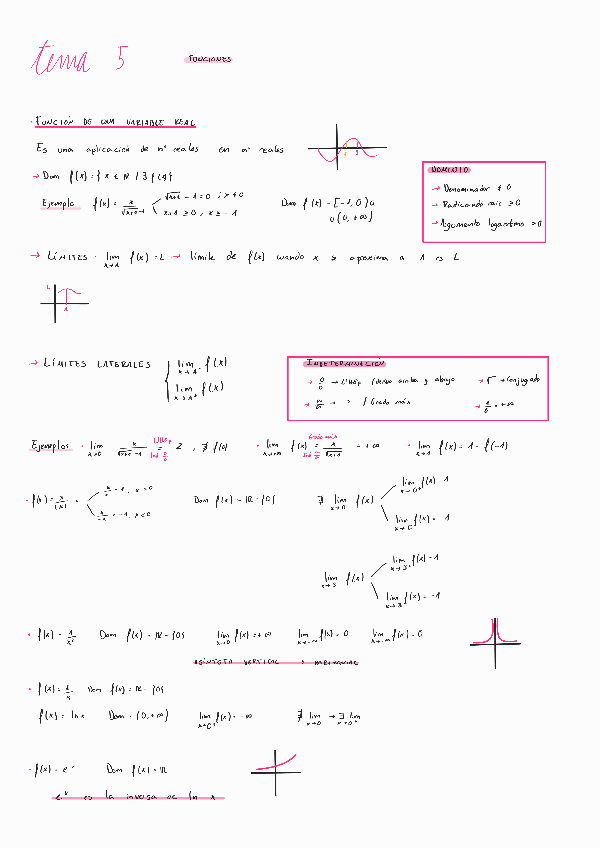 tema 5 FUNCIONES
· FUNCIÓN DE UNA VARIABLE REAL
Es una aplicación de nº reales en nº reales
→ Dom f(x) = { x ∈ ℝ / ∃ f(x)}
Ejemplo f(x) = x/(√(x+1) -1) √(x+1) - 1 = 0 ; x ≠ 0
x+1 ≥ 0 , x ≥ -1
Dom f(x) = [-1, 0) ∪
∪ (0, +∞)
DOMINIO
→ Denominador ≠ 0
→ Radicando raíz ≥ 0
→ Argumento logaritmo >0
→ LÍMITES · lim x→1 f(x) = L → límite de f(x) cuando x se aproxima a 1 es L
L
1
→ LÍMITES LATERALES lim x→1⁻ f(x)
lim x→1⁺ f(x)
INDETERMINACIÓN
→ 0/0 → L'Hôp / deriva arriba y abajo → √ → conjugado
→ ∞/∞ → " / Grado máx → 1/0 = +∞
Ejemplos · lim x→0 x/(√(x+1) -1) = L'Hôp Ind 0/0 2 , ∄ f(0) · lim x→+∞ f(x) = Grado máx Ind ∞/∞ x/√(x+1) = +∞ · lim x→1 f(x) = 1 = f(-1)
· f(x) = x/|x| = x/x = 1, x > 0
x/-x = -1, x < 0
Dom f(x) = ℝ - {0} ∄ lim x→0 f(x) lim x→0⁺ f(x) = 1
lim x→0⁻ f(x) = 1
lim x→3 f(x) lim x→3⁺ f(x) = 1
lim x→3⁻ f(x) = -1
· f(x) = 1/x² Dom f(x) = ℝ - {0} lim x→0 f(x) = +∞ lim x→-∞ f(x) = 0 lim x→-∞ f(x) = 0
ASÍNTOTA VERTICAL Y HORIZONTAL
· f(x) = 1/x Dom f(x) = ℝ - {0}
f(x) = ln x Dom = (0, +∞) lim x→0⁺ f(x) = -∞ ∄ lim x→0 → ∃ lim x→0⁺
· f(x) = eˣ Dom f(x) = ℝ
eˣ es la inversa de ln x